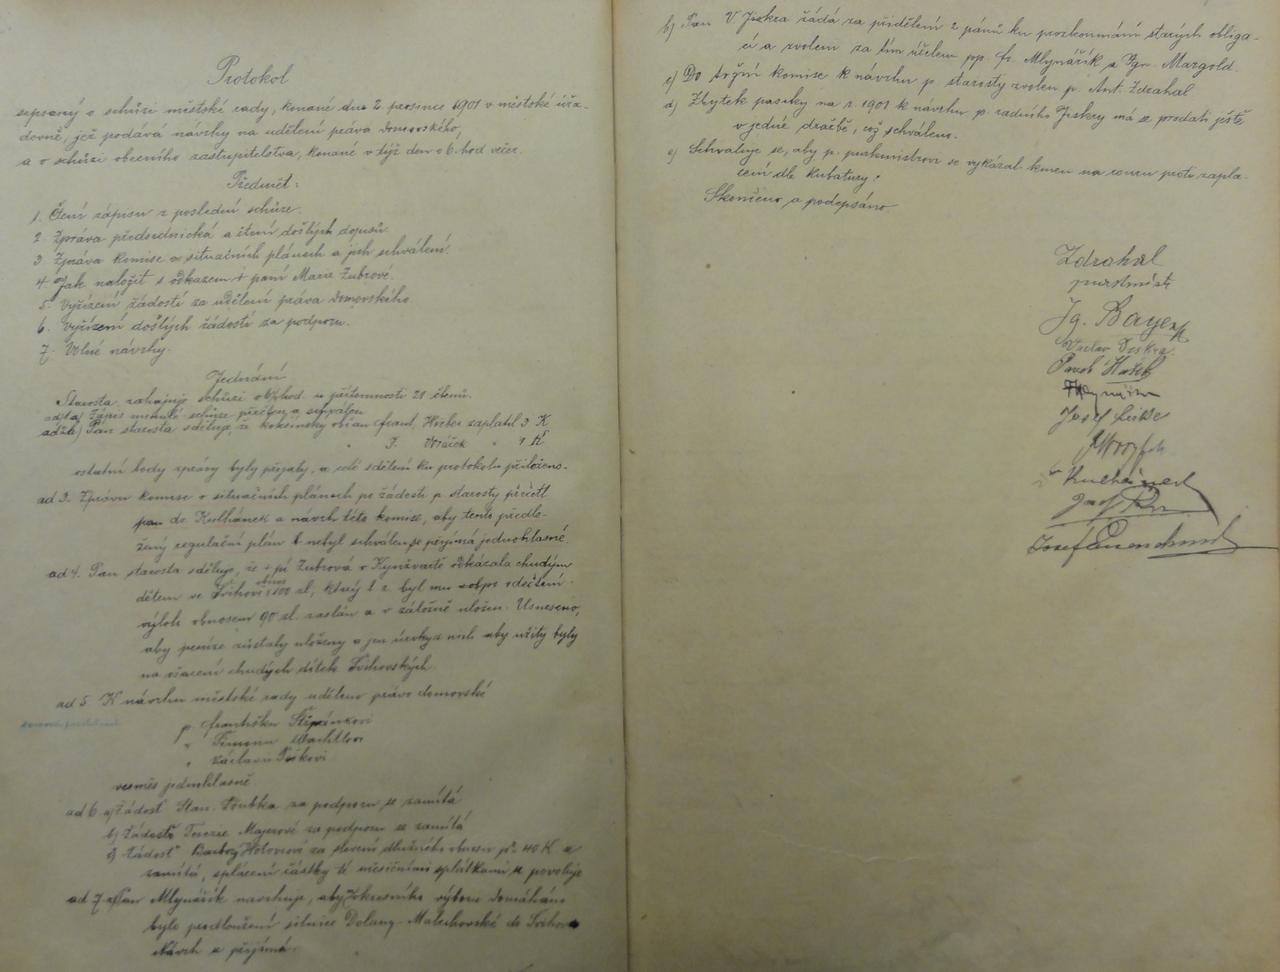 Protokol
sepsaný o schůzi městské rady, konané dne 2. prosince 1901 v městské úřa-
dovně, jež podává návrhy na udělení práva domovského,
a o schůzi obecního zastupitelstva, konané v týž den o 6. hod večer.
Předmět:
1. Čtení zápisu z poslední schůze.
2. Zpráva předsednická a čtení došlých dopisů.
3 Zpráva komise o situačních plánech a jich schválení.
4 Jak naložit s odkazem + paní Marie Zubrové.
5. Vyřízení žádostí za udělení práva domovského.
6. Vyřízení došlých žádostí za podporu.
7. Volné návrhy.
Jednání
Starosta zahajuje schůzi o hod. u přítomnosti 21 členů.
ad 1a) Zápis minulé schůze přečten a schválen
ad 2a) Pan starosta sděluje, že občan Frant. zaplatil 3 K
" J. " 1 K
ostatní body zprávy byly přijaty, a celé sdělení ku protokolu přiloženo.
ad 3. Zprávu komise o situačních plánech po žádosti p. starosty přečetl
pan dr. Kulhánek a návrh této komise, aby tento předlo-
žený regulační plán nebyl schválen, se přijímá jednohlasně.
ad 4. Pan starosta sděluje, že + pí Zubrová v Kynžvartě odkázala chudým
dětem ve Švihově obnos 100 zl, který t. r. byl mu po odečtení
výloh obnosem 90 zl. zaslán a v záložně uložen. Usneseno,
aby peníze zůstaly uloženy a jen úroky z nich aby užity byly
na ošacení chudých dítek Švihovských.
ad 5 K návrhu městské rady uděleno právo domovské
p. Františku Štěpánkovi
" Šimonu
" Václavu
vesměs jednohlasně
ad 6. a) Žádost Stan. Toubka za podporu se zamítá
b) Žádost Terezie Majerové za podporu se zamítá
c) Žádost Barbory za slevení dlužného obnosu pr. 40 K se
zamítá, splácení částky té měsíčními splátkami se povoluje
ad 7. a) Pan Mlynářík navrhuje, aby u okresního výboru domáháno
bylo prodloužení silnice Dolany-Malechovské do Švihova
Návrh se přijímá.
b) Pan V Jiskra žádá za přidělení 2 pánů ku prozkoumání starých obliga-
cí a zvoleni za tím účelem pp. Fr. Mlynářík a Ign. Margold.
c) Do tržní komise k návrhu p. starosty zvolen p. Ant. Zdrahal
d) Zbytek paseky na r. 1901 k návrhu p. radního Jiskry má se prodati ještě
v jedné dražbě, což schváleno.
e) Schvaluje se, aby p. purkmistrovi se vykázal kmen na rouru proti zapla-
cení dle kubatury.
Skončeno a podepsáno.
Zdrahal
purkmistr
Ig. Bayer
Václav Jiskra
Pavel Hašek
Mlynářík
Josef
Dr Kulhánek
Josef
Josef